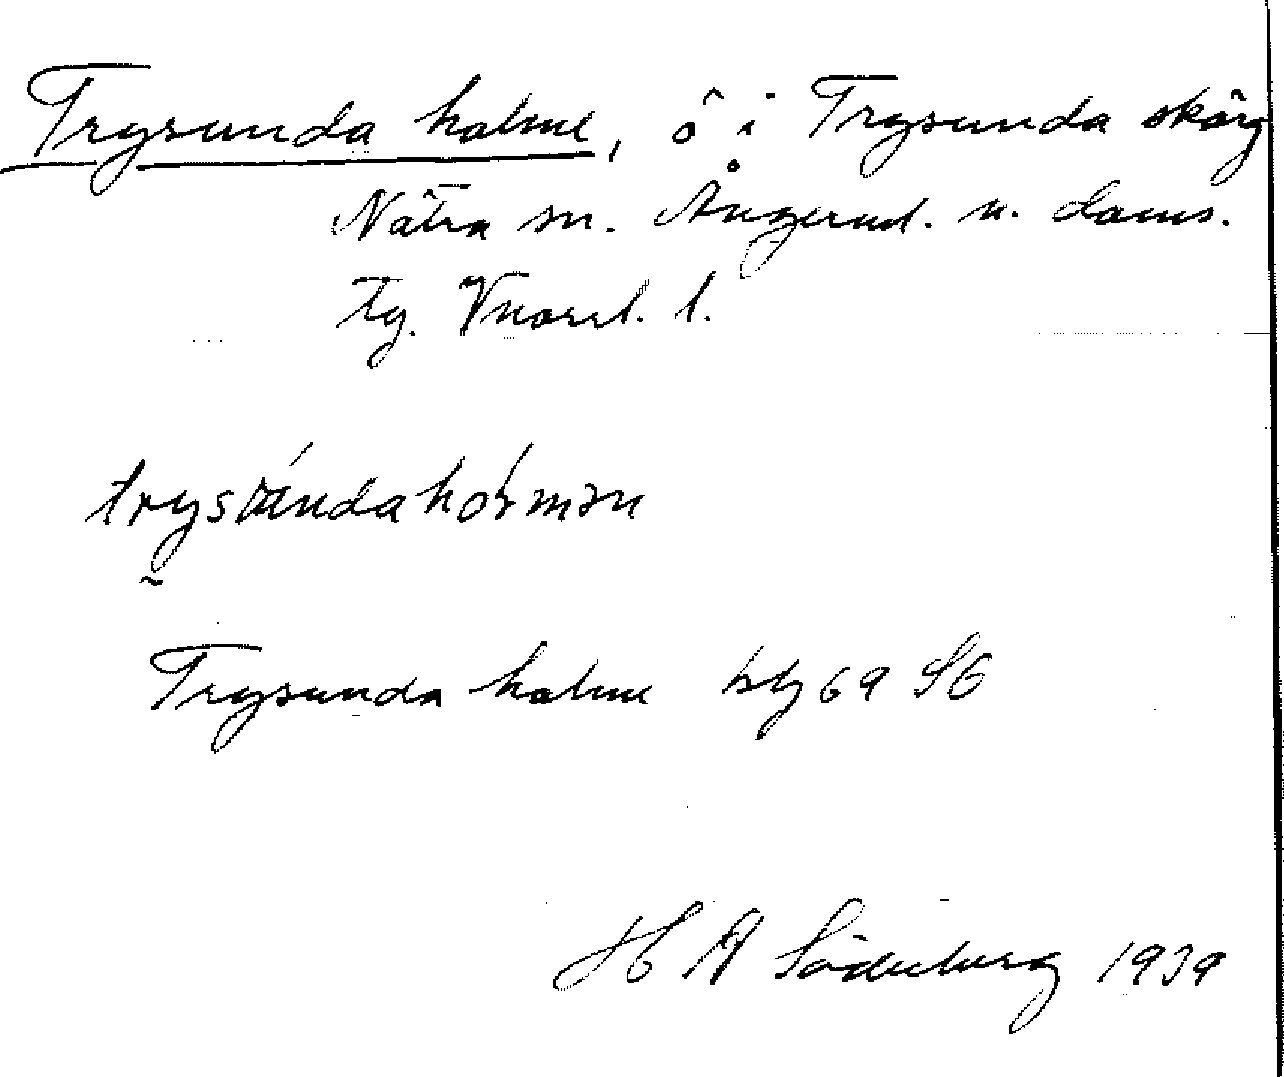 Trysunda holme, ö i Trysunda skärg
Nätra sn. Ångerml. n. doms.
tg. Vnorrl. l.
trysundahólmən
Trysunda holme bl 69 SG
H A Söderberg 1939